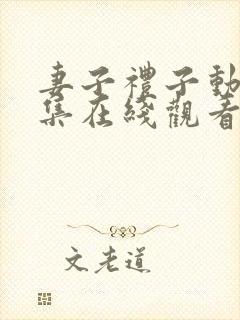 妻子禮子動
集在綫觀看
文老道